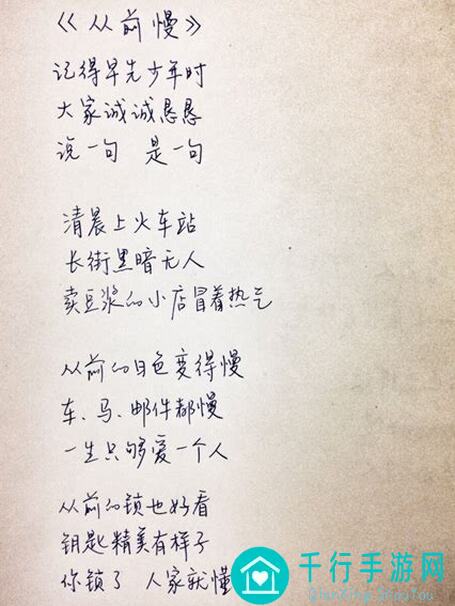 《从前慢》
记得早先少年时
大家诚诚恳恳
说一句 是一句
清晨上火车站
长街黑暗无人
卖豆浆的小店冒着热气
从前的日色变得慢
车、马、邮件都慢
一生只够爱一个人
从前的锁也好看
钥匙精美有样子
你锁了 人家就懂
千行手游网
QianXingShouYou